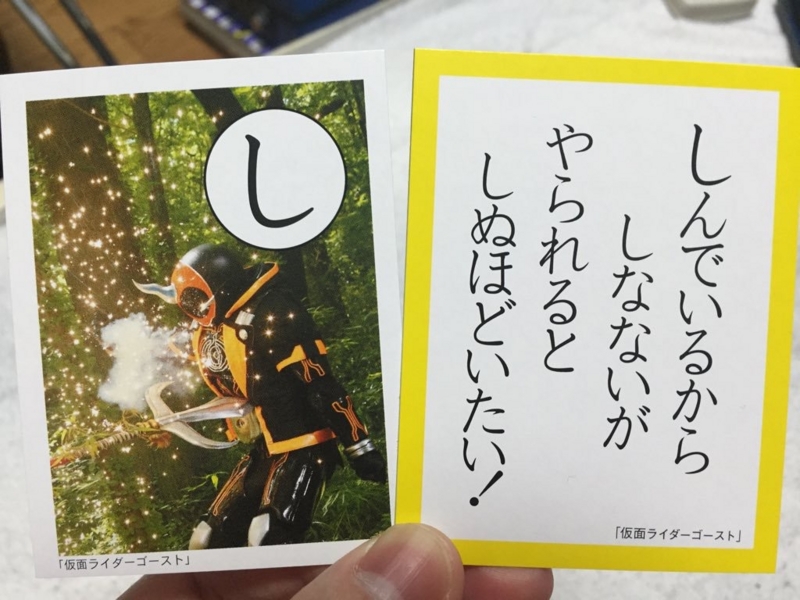 し
「仮面ライダーゴースト」
しんでいるから
しなないが
やられると
しぬほどいたい!
「仮面ライダーゴースト」